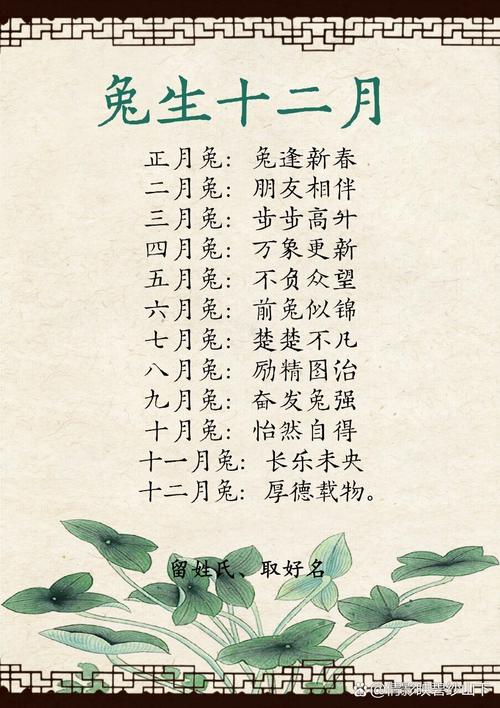 兔生十二月
正月兔：兔逢新春
二月兔：朋友相伴
三月兔：步步高升
四月兔：万象更新
五月兔：不负众望
六月兔：前兔似锦
七月兔：楚楚不凡
八月兔：励精图治
九月兔：奋发兔强
十月兔：怡然自得
十一月兔：长乐未央
十二月兔：厚德载物。
留姓氏、取好名